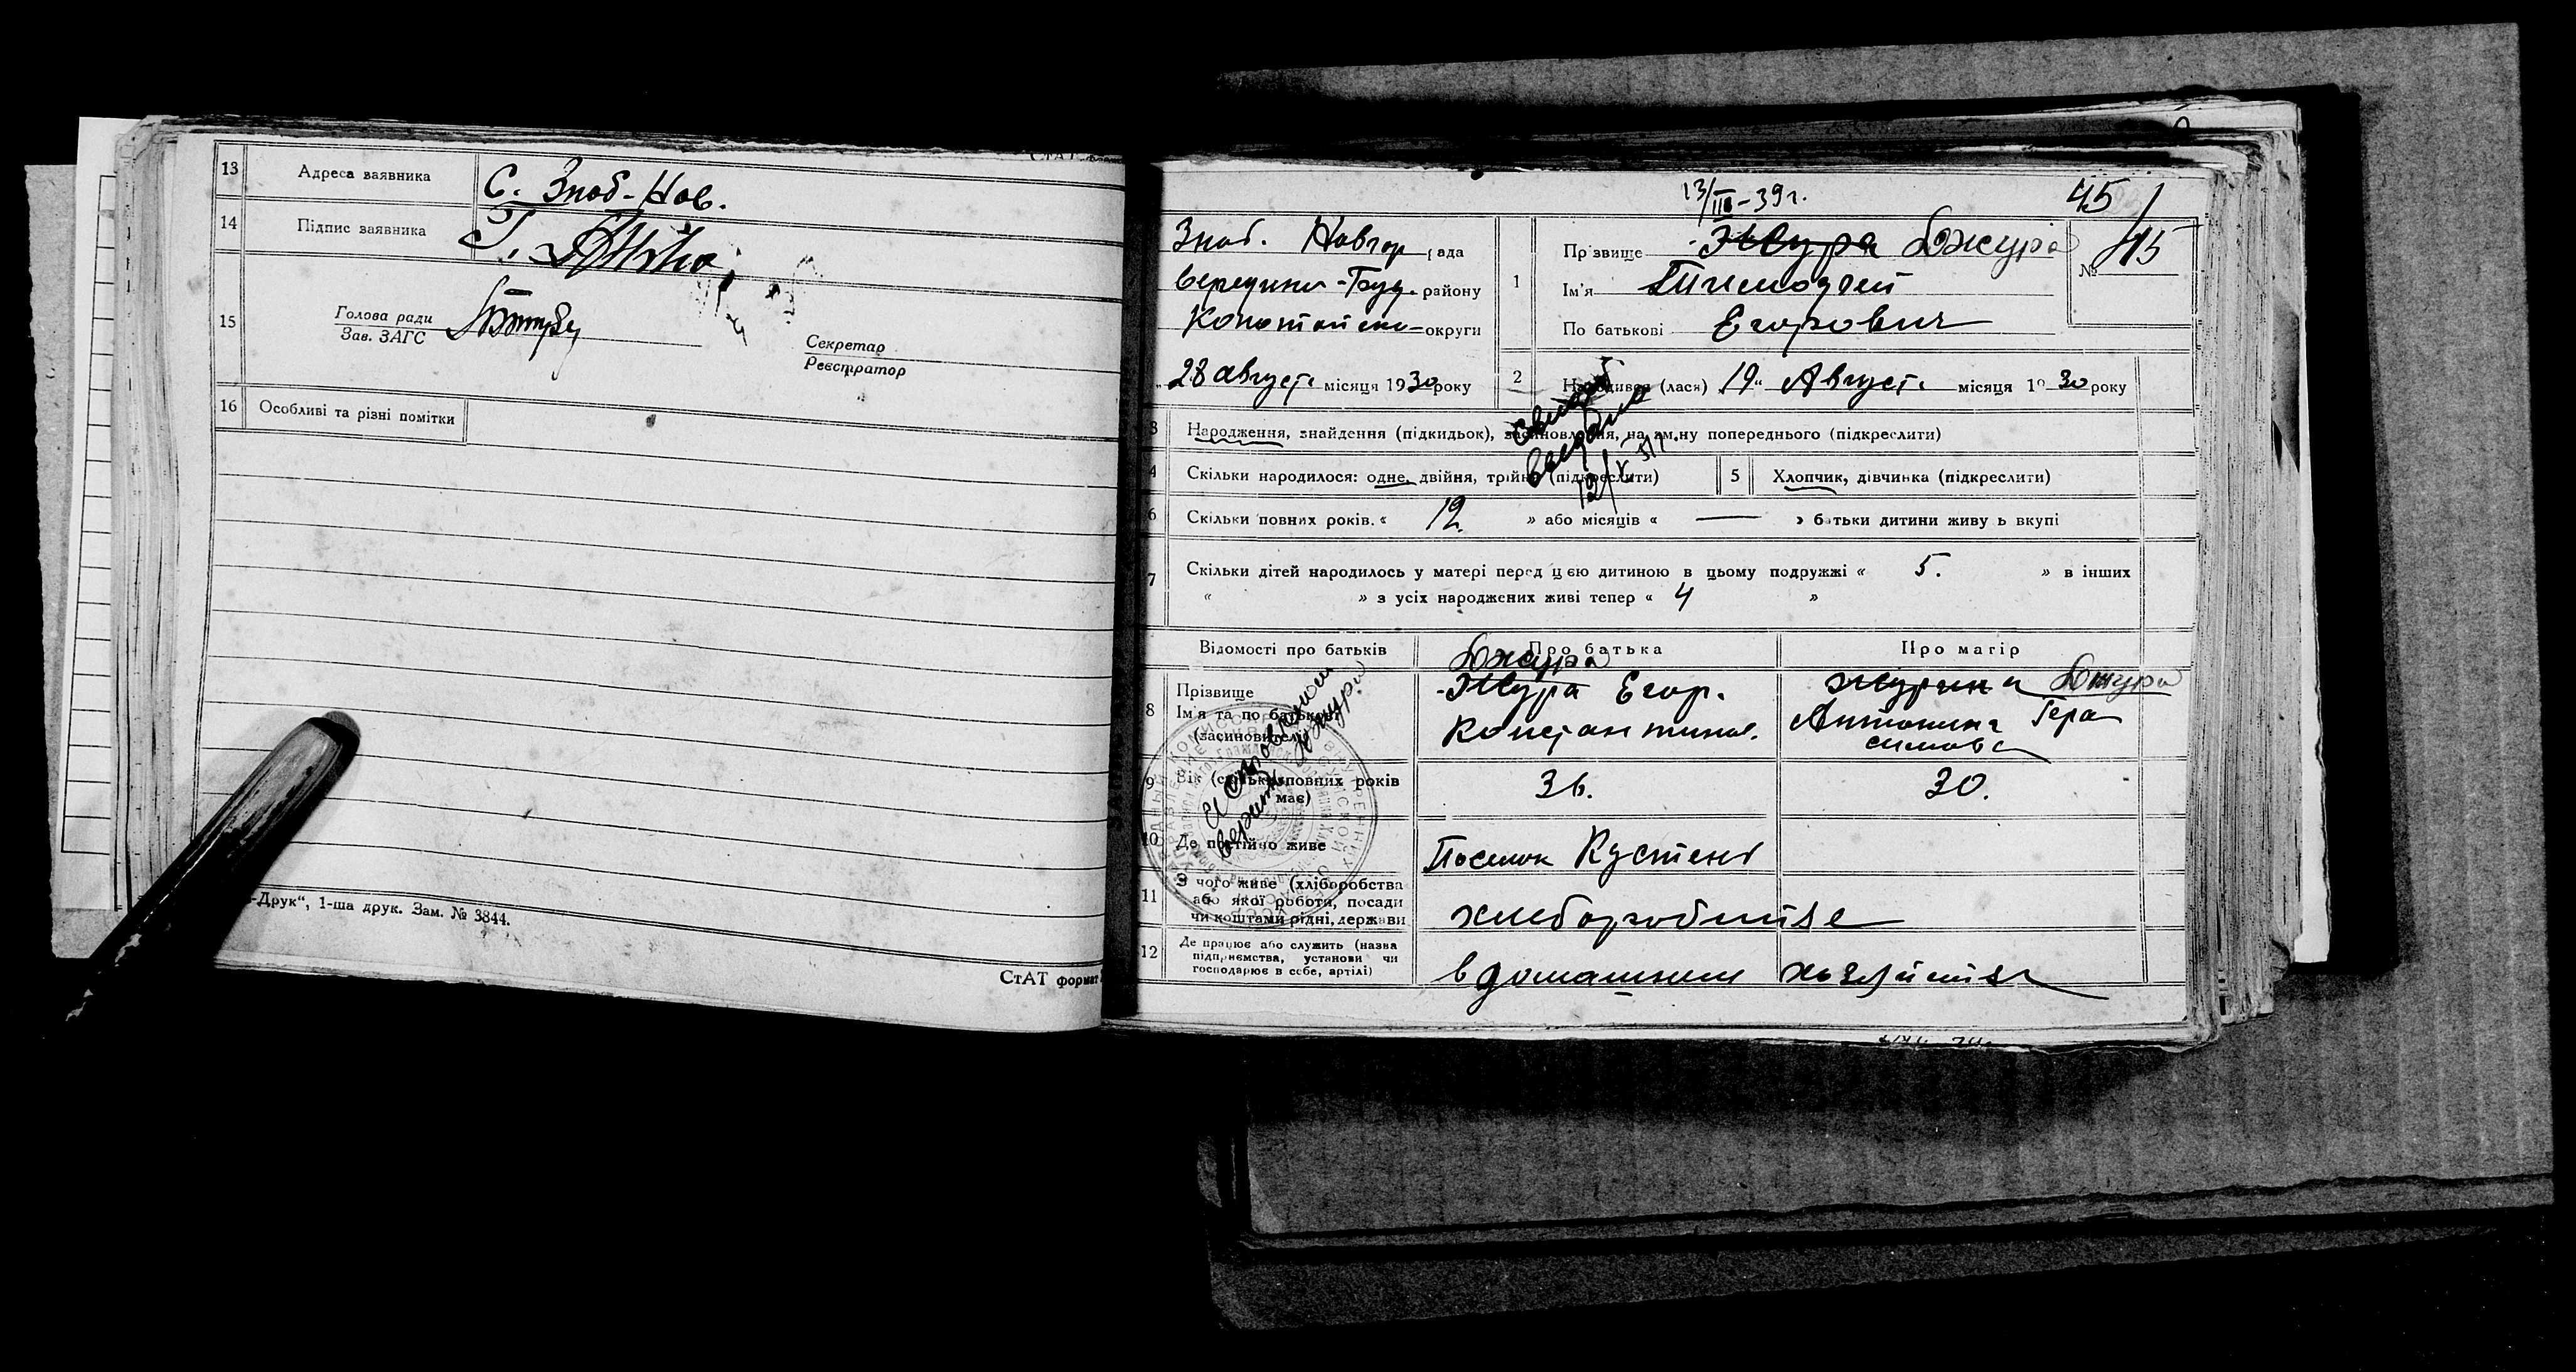 13 Адреса заявника С. Зноб-Нов.
14 Підпис заявника
15 Голова ради
Зав. ЗАГС
Секретар
Реєстратор
16 Особливі та різні помітки
-Друк“, 1-ша друк. Зам. № 3844.
СтАТ формат
13/III-39г.
45
Зноб. Новгор рада
Середино-Буд. району
Конотопско- округи
„28 август. місяця 1930 року
1 Прізвище Жура Джура
№ 45
Ім'я Тимофей
По батькові Егорович
2 Народився (лася) 19“ Август. місяця 1930 року
свидот
выдано
12/V 51г.
3 Народження, знайдення (підкидьок), засиновлення, на зміну попереднього (підкреслити)
4 Скільки народилося: одне, двійня, трійня (підкреслити)
5 Хлопчик, дівчинка (підкреслити)
6 Скільки повних років « 12 » або місяців « — » батьки дитини живуть вкупі
7 Скільки дітей народилось у матері перед цією дитиною в цьому подружжі « 5. » в інших
« » з усіх народжених живі тепер « 4 »
Відомості про батьків
Про батька
Про матір
8 Прізвище
Ім'я та по батькові
(засиновителі)
Джура
Жура Егор.
Константинов.
Джура
Антонина Гера
симовна
9 Вік (скільки повних років
має)
36.
30.
10 Де постійно живе
Поселок Кустени
11 З чого живе (хліборобства
або якої роботи, посади
чи коштами рідні, держави
хлеборобтве
12 Де працює або служить (назва
підприємства, установи чи
господарює в себе, артілі)
в домашнем хозяйстве
Исправленом
верить Джура